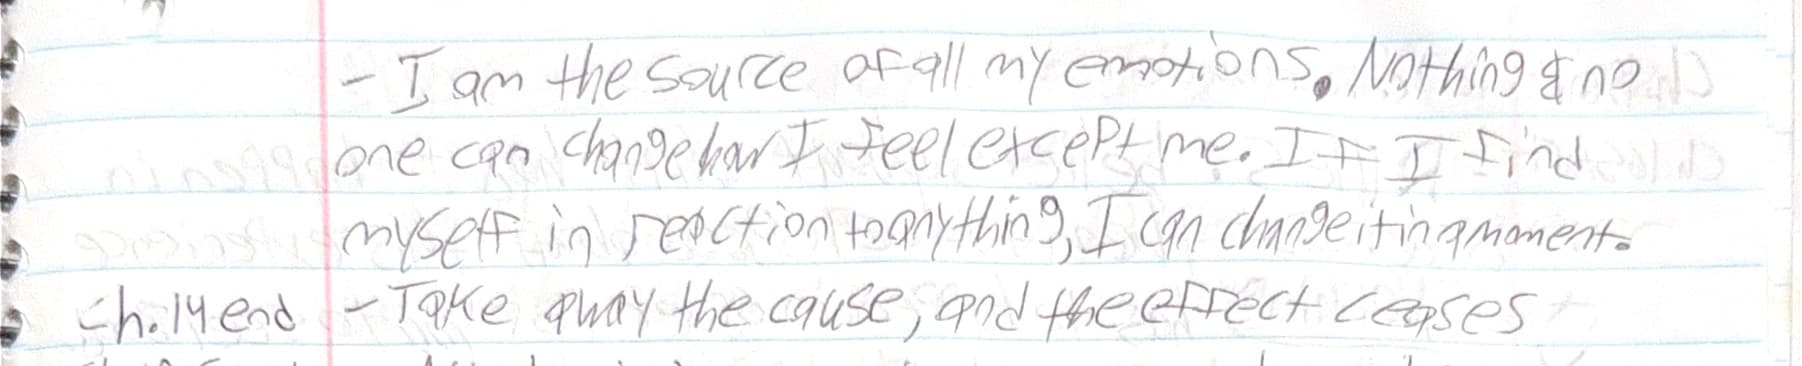 - I am the source of all my emotions. Nothing & no
one can change how I feel except me. If I find
myself in reaction to anything, I can change it in a moment.
Ch. 14 end - Take away the cause, and the effect ceases